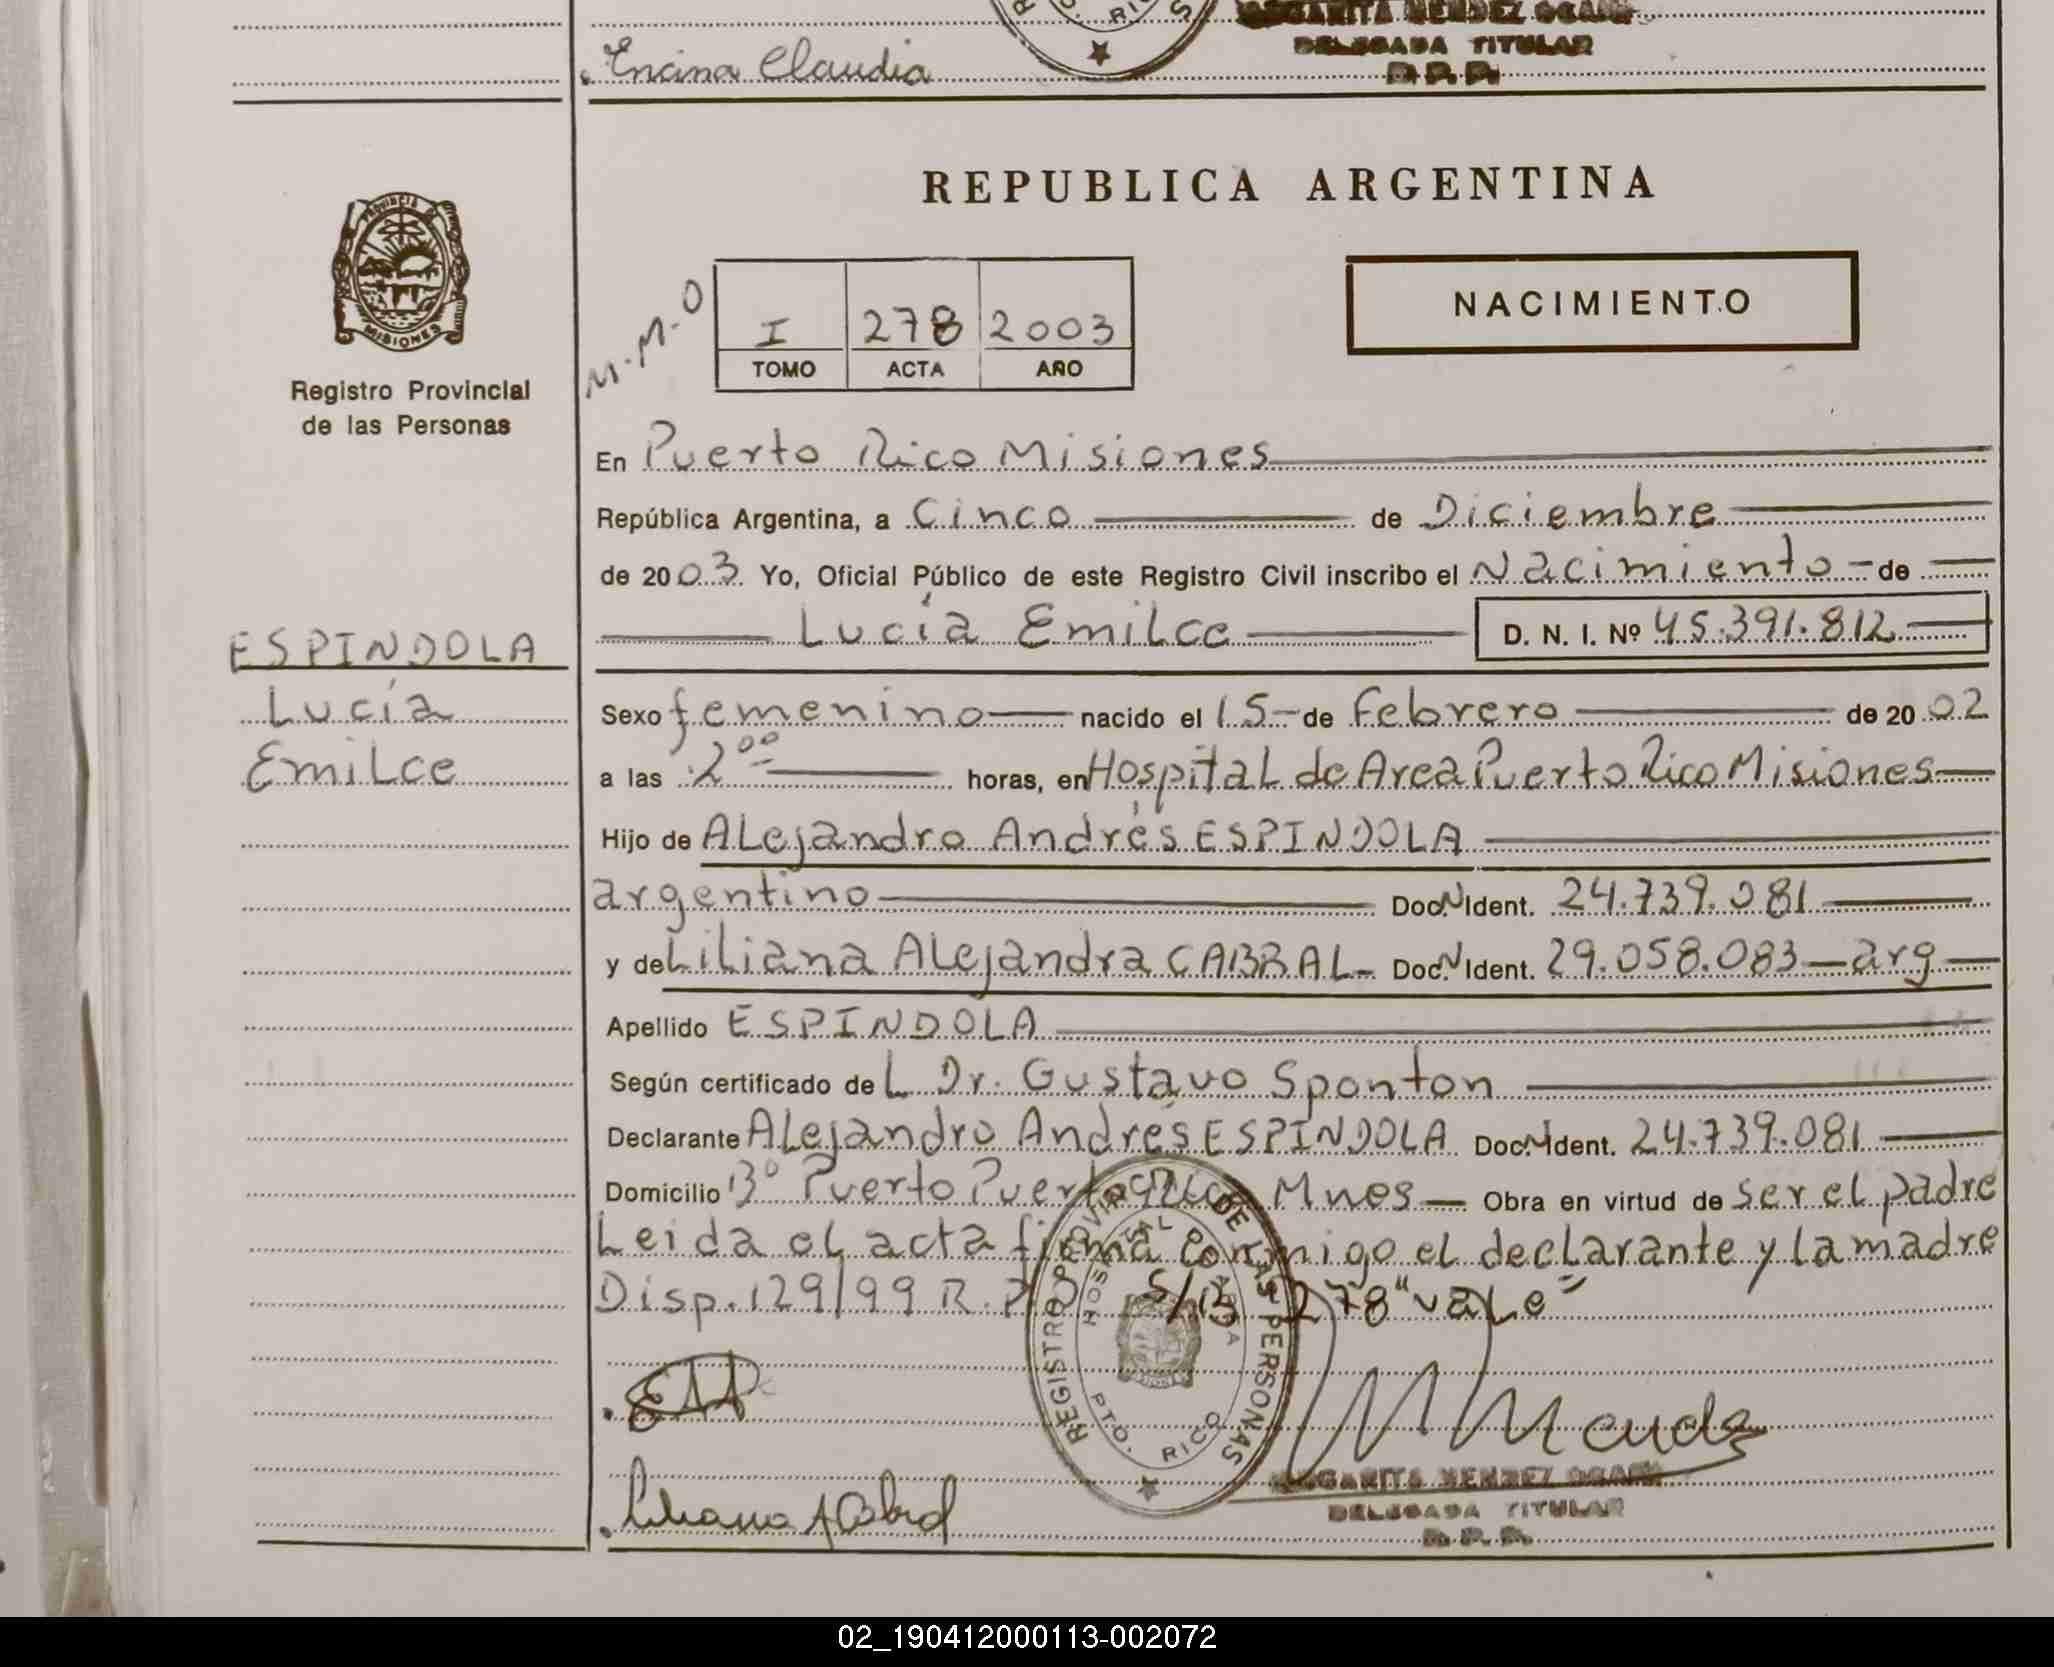 Encina Claudia
MARGARITA MENDEZ OCAMPO
DELEGADA TITULAR
R. P. P.
REPUBLICA ARGENTINA
PROVINCIA DE
MISIONES
Registro Provincial
de las Personas
M.M.O
I 278 2003
TOMO ACTA AÑO
NACIMIENTO
En Puerto Rico Misiones
República Argentina, a Cinco de Diciembre
de 2003. Yo, Oficial Público de este Registro Civil inscribo el Nacimiento de
Lucía Emilce D. N. I. Nº 45.391.812
ESPINDOLA
Lucía
Emilce
Sexo femenino nacido el 15 de Febrero de 2002
a las 2 00 horas, en Hospital de Area Puerto Rico Misiones
Hijo de Alejandro Andrés ESPINDOLA
argentino Doc. N Ident. 24.739.081
y de Liliana Alejandra CABRAL Doc. N Ident. 29.058.083 arg
Apellido ESPINDOLA
Según certificado del Dr. Gustavo Sponton
Declarante Alejandro Andrés ESPINDOLA Doc. N Ident. 24.739.081
Domicilio B° Puerto Puerto Rico Mnes Obra en virtud de ser el padre
Leida el acta firma conmigo el declarante y la madre
Disp. 129/99 R.P.P S/B 278 "vale"
REGISTRO PROVINCIAL DE LAS PERSONAS
HOSPITAL AREA
PTO. RICO
Liliana A Cabral
M Mendez
MARGARITA MENDEZ OCAMPO
DELEGADA TITULAR
R. P. P.
02_190412000113-002072